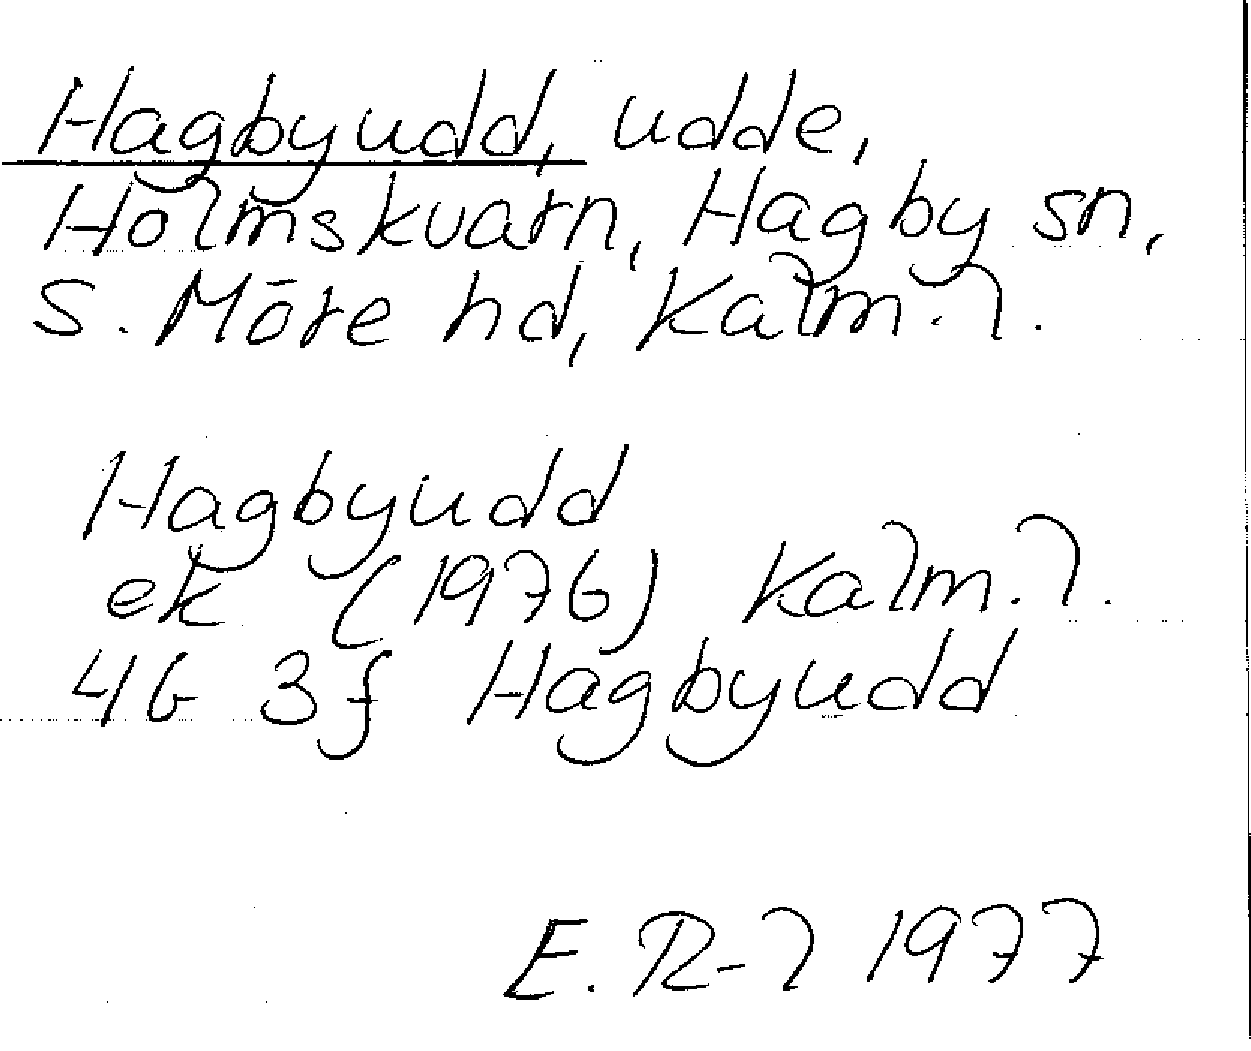 Hagbyudd, udde,
Holmskvarn, Hagby sn,
S. Möre hd, Kalm. l.
Hagbyudd
ek (1976) Kalm. l.
4G 3f Hagbyudd
E. R-l 1977